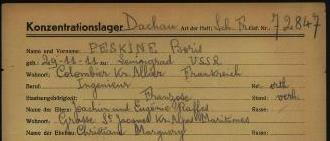 Konzentrationslager Dachau Art der Haft: Sch. Fr. Gef. Nr.: 72847
Name und Vorname: PESKINE Boris
geb.: 29-11-11 zu: Leningrad USSR
Wohnort: Colombier Kr. Allier Frankreich
Beruf: Ingenieur Rel.: orth
Staatsangehörigkeit: Franzose Stand: verh.
Name der Eltern: Joachim und Eugénie Raffel Rasse:
Wohnort: Grasse St Jacques Kr. Alpes Maritimes
Name der Ehefrau: Christiane Rasse: